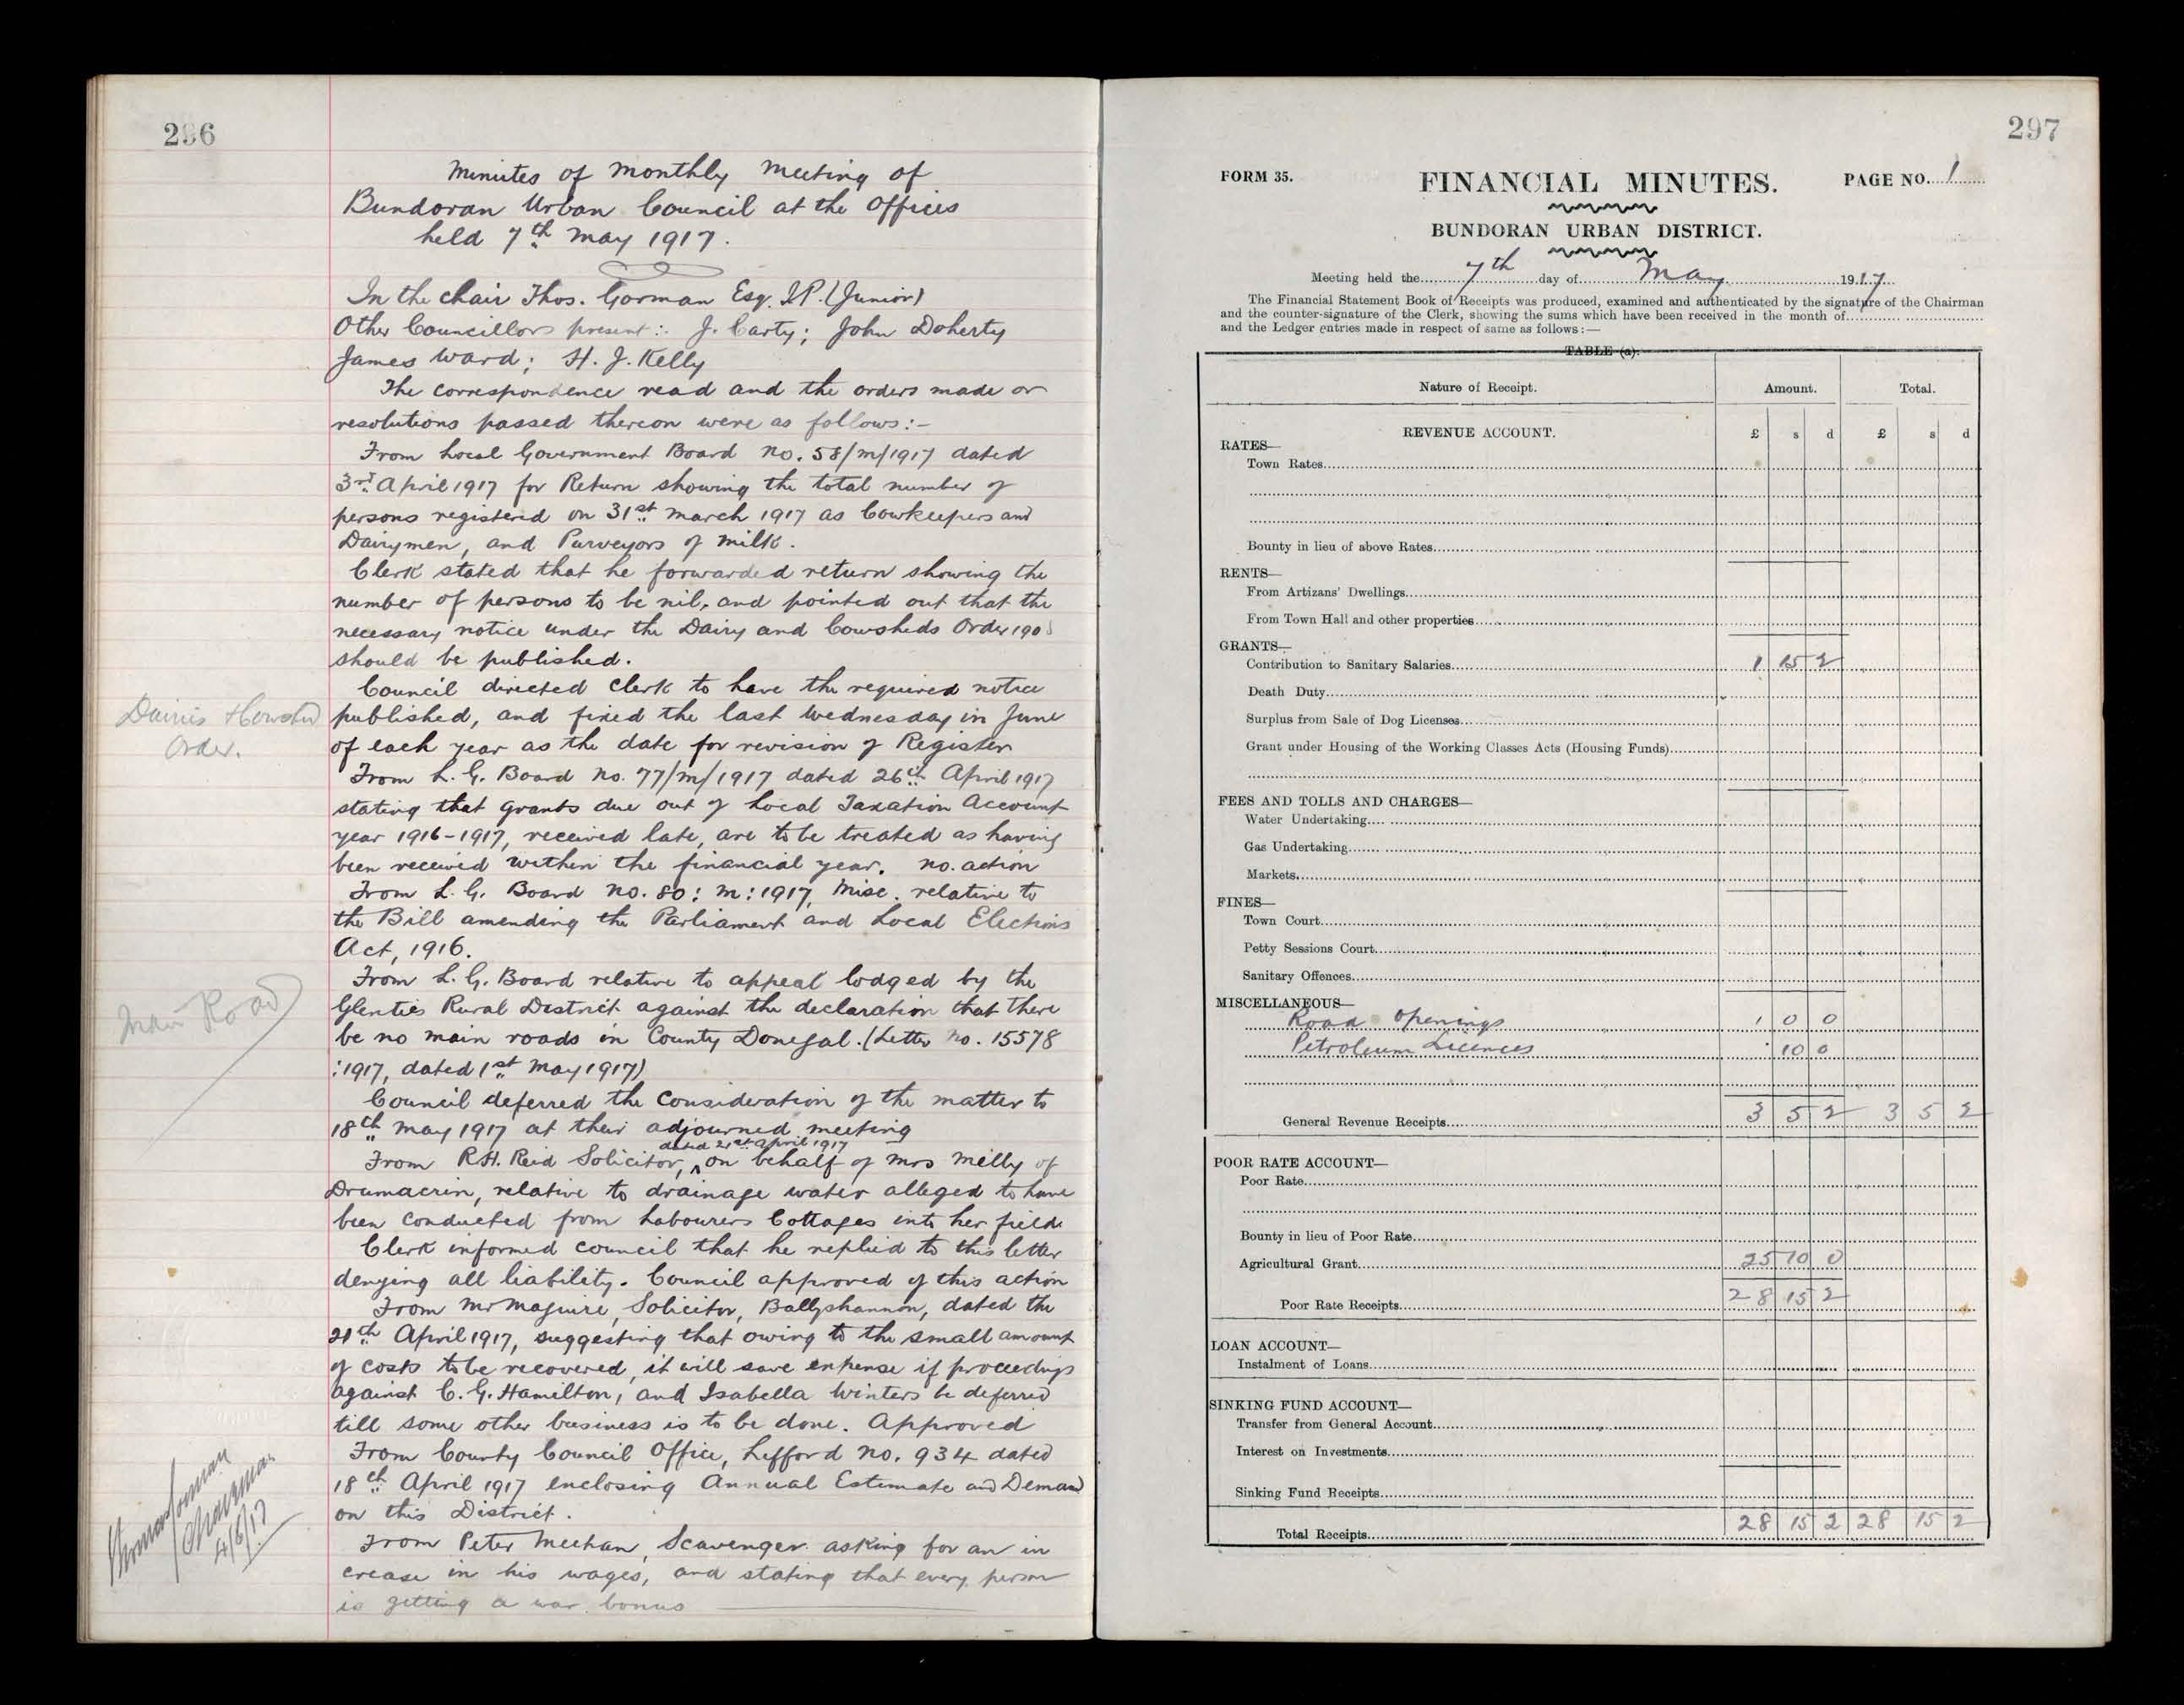 296
Minutes of Monthly Meeting of
Bundoran Urban Council at the Offices
held 7th May 1917.
In the chair Thos. Gorman Esq. J.P. (Junior)
Other Councillors present:- J. Carty; John Doherty
James Ward; H. J. Kelly
The correspondence read and the orders made or
resolutions passed thereon were as follows:-
From Local Government Board No. 58/M/1917 dated
3rd April 1917 for Return showing the total number of
persons registered on 31st March 1917 as Cowkeepers and
Dairymen, and Purveyors of Milk.
Clerk stated that he forwarded return showing the
number of persons to be nil, and pointed out that the
necessary notice under the Dairy and Cowsheds Order 1908
should be published.
Council directed Clerk to have the required notice
Dairies
Order.
published, and fixed the last Wednesday in June
of each year as the date for revision of Register
From L. G. Board No. 77/M/1917 dated 26th April 1917
stating that grants due out of Local Taxation Account
year 1916-1917, received late, are to be treated as having
been received within the financial year. No action
From L. G. Board No. 80: M: 1917, Misc. relative to
the Bill amending the Parliament and Local Elections
Act, 1916.
From L. G. Board relative to appeal lodged by the
Main Road
Glenties Rural District against the declaration that there
be no main roads in County Donegal. (Letter No. 15578
:1917, dated 1st May 1917)
Council deferred the consideration of the matter to
18th May 1917 at their adjourned meeting
dated 21st April 1917
From R.H. Reid Solicitor, ^ on behalf of Mrs Melly of
Drumacrin, relative to drainage water alleged to have
been conducted from Labourers Cottages into her field.
Clerk informed council that he replied to this letter
denying all liability. Council approved of this action
From Mr Maguire, Solicitor, Ballyshannon, dated the
April 1917, suggesting that owing to the small amount
of costs to be recovered, it will save expense if proceedings
against C. G. Hamilton, and Isabella Winters be deferred
till some other business is to be done. Approved
From County Council Office, Lifford No. 934 dated
18th April 1917 enclosing Annual Estimate and Demand
on this District.
From Peter Meehan, Scavenger asking for an in
crease in his wages, and stating that every person
is getting a war bonus
Thomas Gorman
Chairman
4/6/17
297
FORM 35.
FINANCIAL MINUTES.
PAGE NO. 1
BUNDORAN URBAN DISTRICT.
Meeting held the 7th day of May 1917
The Financial Statement Book of Receipts was produced, examined and authenticated by the signature of the Chairman
and the counter-signature of the Clerk, showing the sums which have been received in the month of
and the Ledger entries made in respect of same as follows:—
TABLE (a).
Nature of Receipt. Amount. Total.
REVENUE ACCOUNT. £ s d £ s d
RATES—
Town Rates
Bounty in lieu of above Rates
RENTS—
From Artizans' Dwellings
From Town Hall and other properties
GRANTS—
Contribution to Sanitary Salaries 1 15 2
Death Duty
Surplus from Sale of Dog Licenses
Grant under Housing of the Working Classes Acts (Housing Funds)
FEES AND TOLLS AND CHARGES—
Water Undertaking
Gas Undertaking
Markets
FINES—
Town Court
Petty Sessions Court
Sanitary Offences
MISCELLANEOUS—
Road openings 1 0 0
Petroleum Licences 10 0
General Revenue Receipts 3 5 2 3 5 2
POOR RATE ACCOUNT—
Poor Rate
Bounty in lieu of Poor Rate
Agricultural Grant 25 10 0
Poor Rate Receipts 28 15 2
LOAN ACCOUNT—
Instalment of Loans
SINKING FUND ACCOUNT—
Transfer from General Account
Interest on Investments
Sinking Fund Receipts
Total Receipts 28 15 2 28 15 2